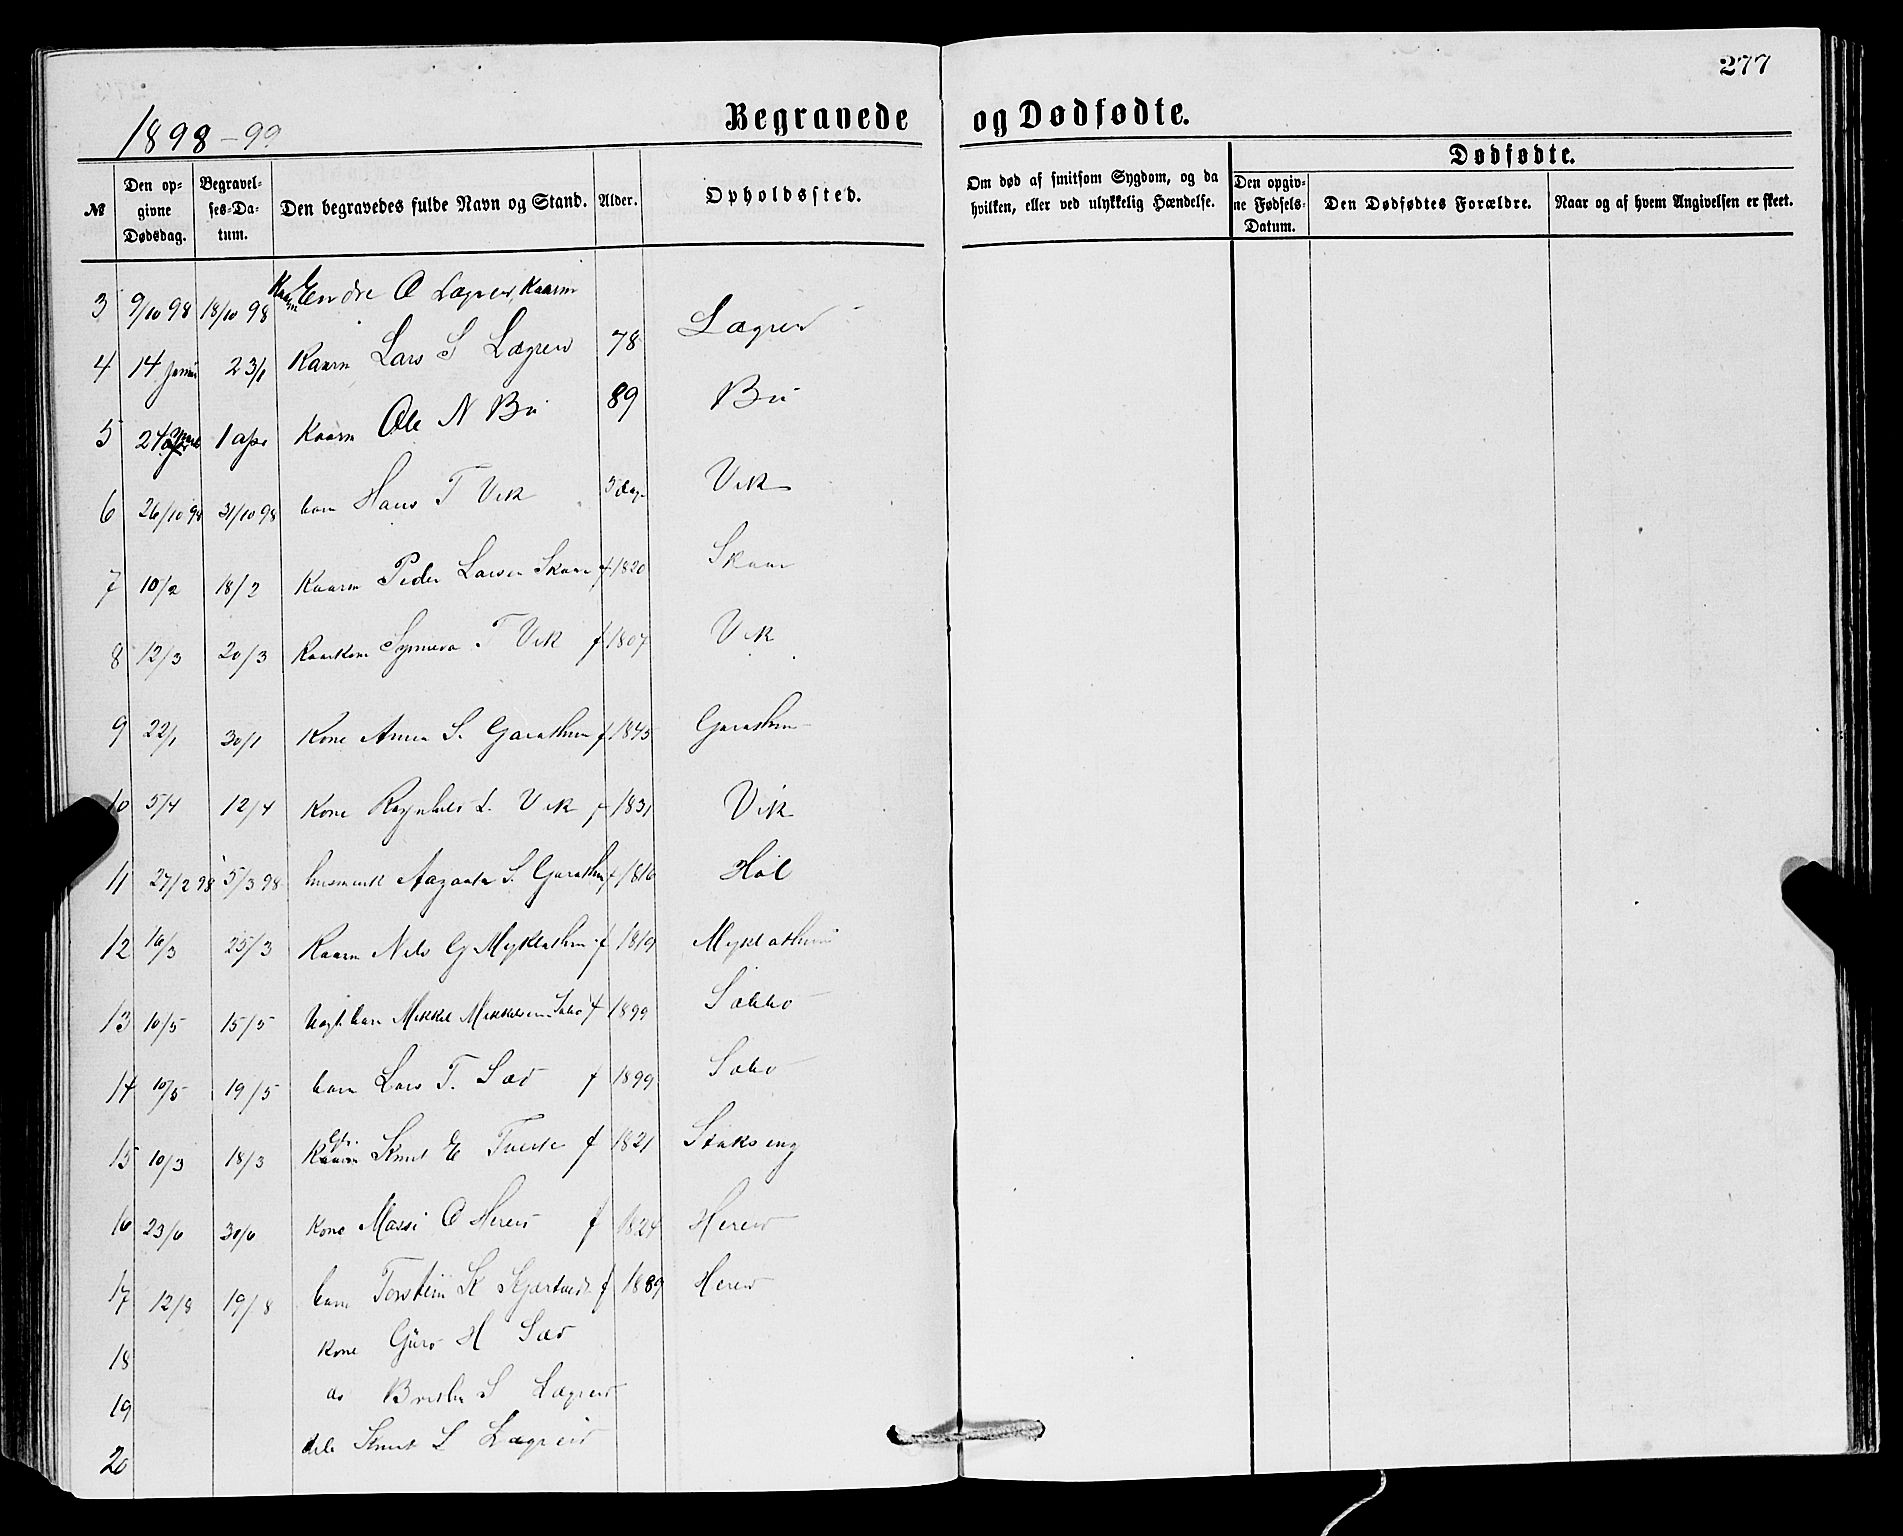 277
1898-99
Begravede og Dødfødte.
№
Den opgivne Dødsdag.
Begravelses-Datum.
Den begravedes fulde Navn og Stand.
Alder.
Opholdssted.
Om død af smitsom Sygdom, og da hvilken, eller ved ulykkelig Hændelse.
Dødfødte.
Den opgivne Fødsels-Datum.
Den Dødfødtes Forældre.
Naar og af hvem Angivelsen er skeet.
3 9/10 98 18/10 98 Endre O Lægreid, Kaarm
4 14 23/1 Kaarm Lars S Lægreid 78 Lægreid
5 24 1 apr Kaarm Ole N Bu 89 Bu
6 26/10 98 31/10 98 barn Hans T Vik Vik
7 10/2 18/2 Kaarm Peder Larsen Skaar f 1820 Skaar
8 12/3 20/3 Synneva T Vik f 1807 Vik
9 22/1 30/1 Kone Anna S. Garathun f 1845 Garathun
10 5/4 12/4 Kone Ragnhild L. Vik f 1831 Vik
11 27/2 98 5/3 98 Aagaata S. Garathun f 1816 Høl
12 16/3 25/3 Kaarm Nils G Myklathun f 1819 Myklathun
13 10/5 15/5 barn Mikkel Mikkelsen Sæbø f 1899 Sæbbø
14 10/5 19/5 barn Lars T. Sæd f 1899 Sæbø
15 10/3 18/3 Kaarm Knut E Tveite f 1821 Stakseng
16 23/6 30/6 Kone Massi O Hereid f 1824 Hereid
17 12/8 19/8 barn Torstein K f 1889 Hereid
18 Kone Guro H Sæd
19 do S Lægreid
20 Knut L Lægreid